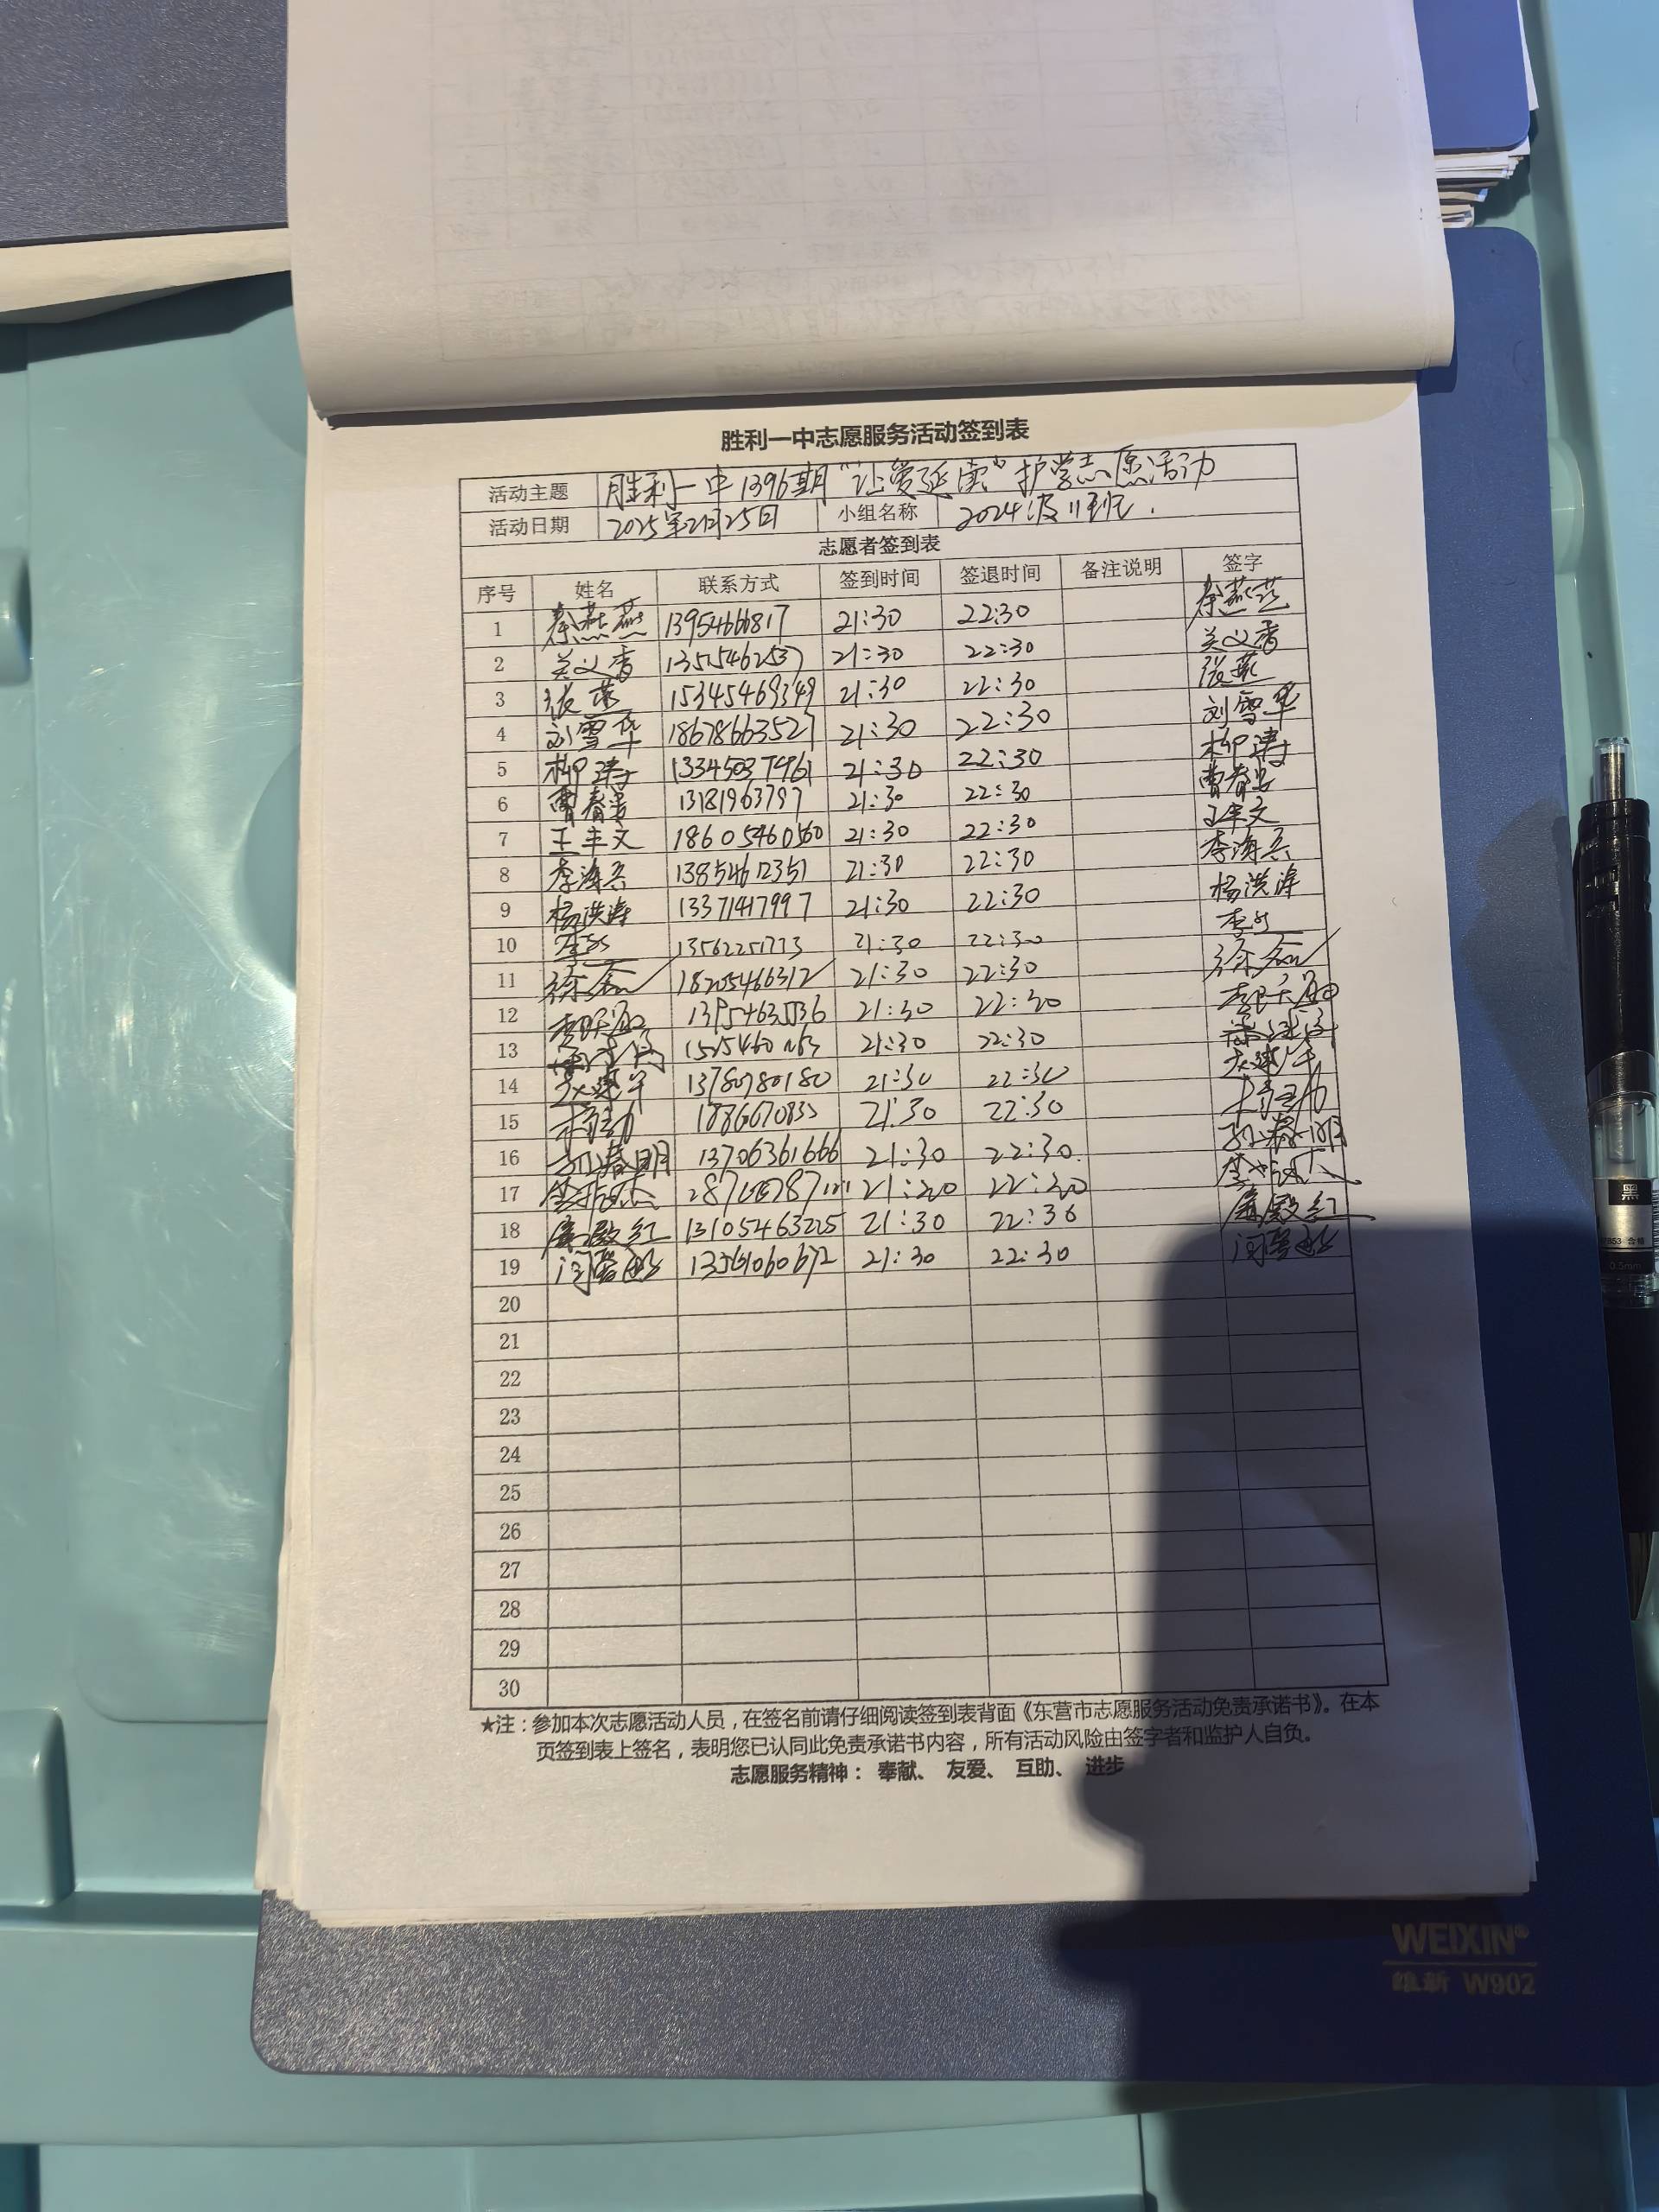 胜利一中志愿服务活动签到表
活动主题 胜利一中1396期“让爱延续”护学志愿活动
活动日期 2025年2月25日 小组名称 2024级11班.
志愿者签到表
序号 姓名 联系方式 签到时间 签退时间 备注说明 签字
1 秦燕燕 13954666817 21:30 22:30 秦燕燕
2 吴义香 21:30 22:30 吴义香
3 张燕 15345469349 21:30 22:30 张燕
4 刘雪华 18678663527 21:30 22:30 刘雪华
5 柳涛 13345037961 21:30 22:30 柳涛
6 21:30 22:30
7 王丰文 18605460560 21:30 22:30 王丰文
8 李海兵 13854612351 21:30 22:30 李海兵
9 杨洪涛 13371417997 21:30 22:30 杨洪涛
10 13562251773 21:30 22:30
11 18205466312 21:30 22:30
12 21:30 22:30
13 21:30 22:30
14 13780780180 21:30 22:30
15 21:30 22:30
16 13706361666 21:30 22:30
17
18 13105463225 21:30 22:30
19 13561060672 21:30 22:30
20
21
22
23
24
25
26
27
28
29
30
★注:参加本次志愿活动人员,在签名前请仔细阅读签到表背面《东营市志愿服务活动免责承诺书》。在本
页签到表上签名,表明您已认同此免责承诺书内容,所有活动风险由签字者和监护人自负。
志愿服务精神: 奉献、 友爱、 互助、 进步
WEIXIN®
维新 W902